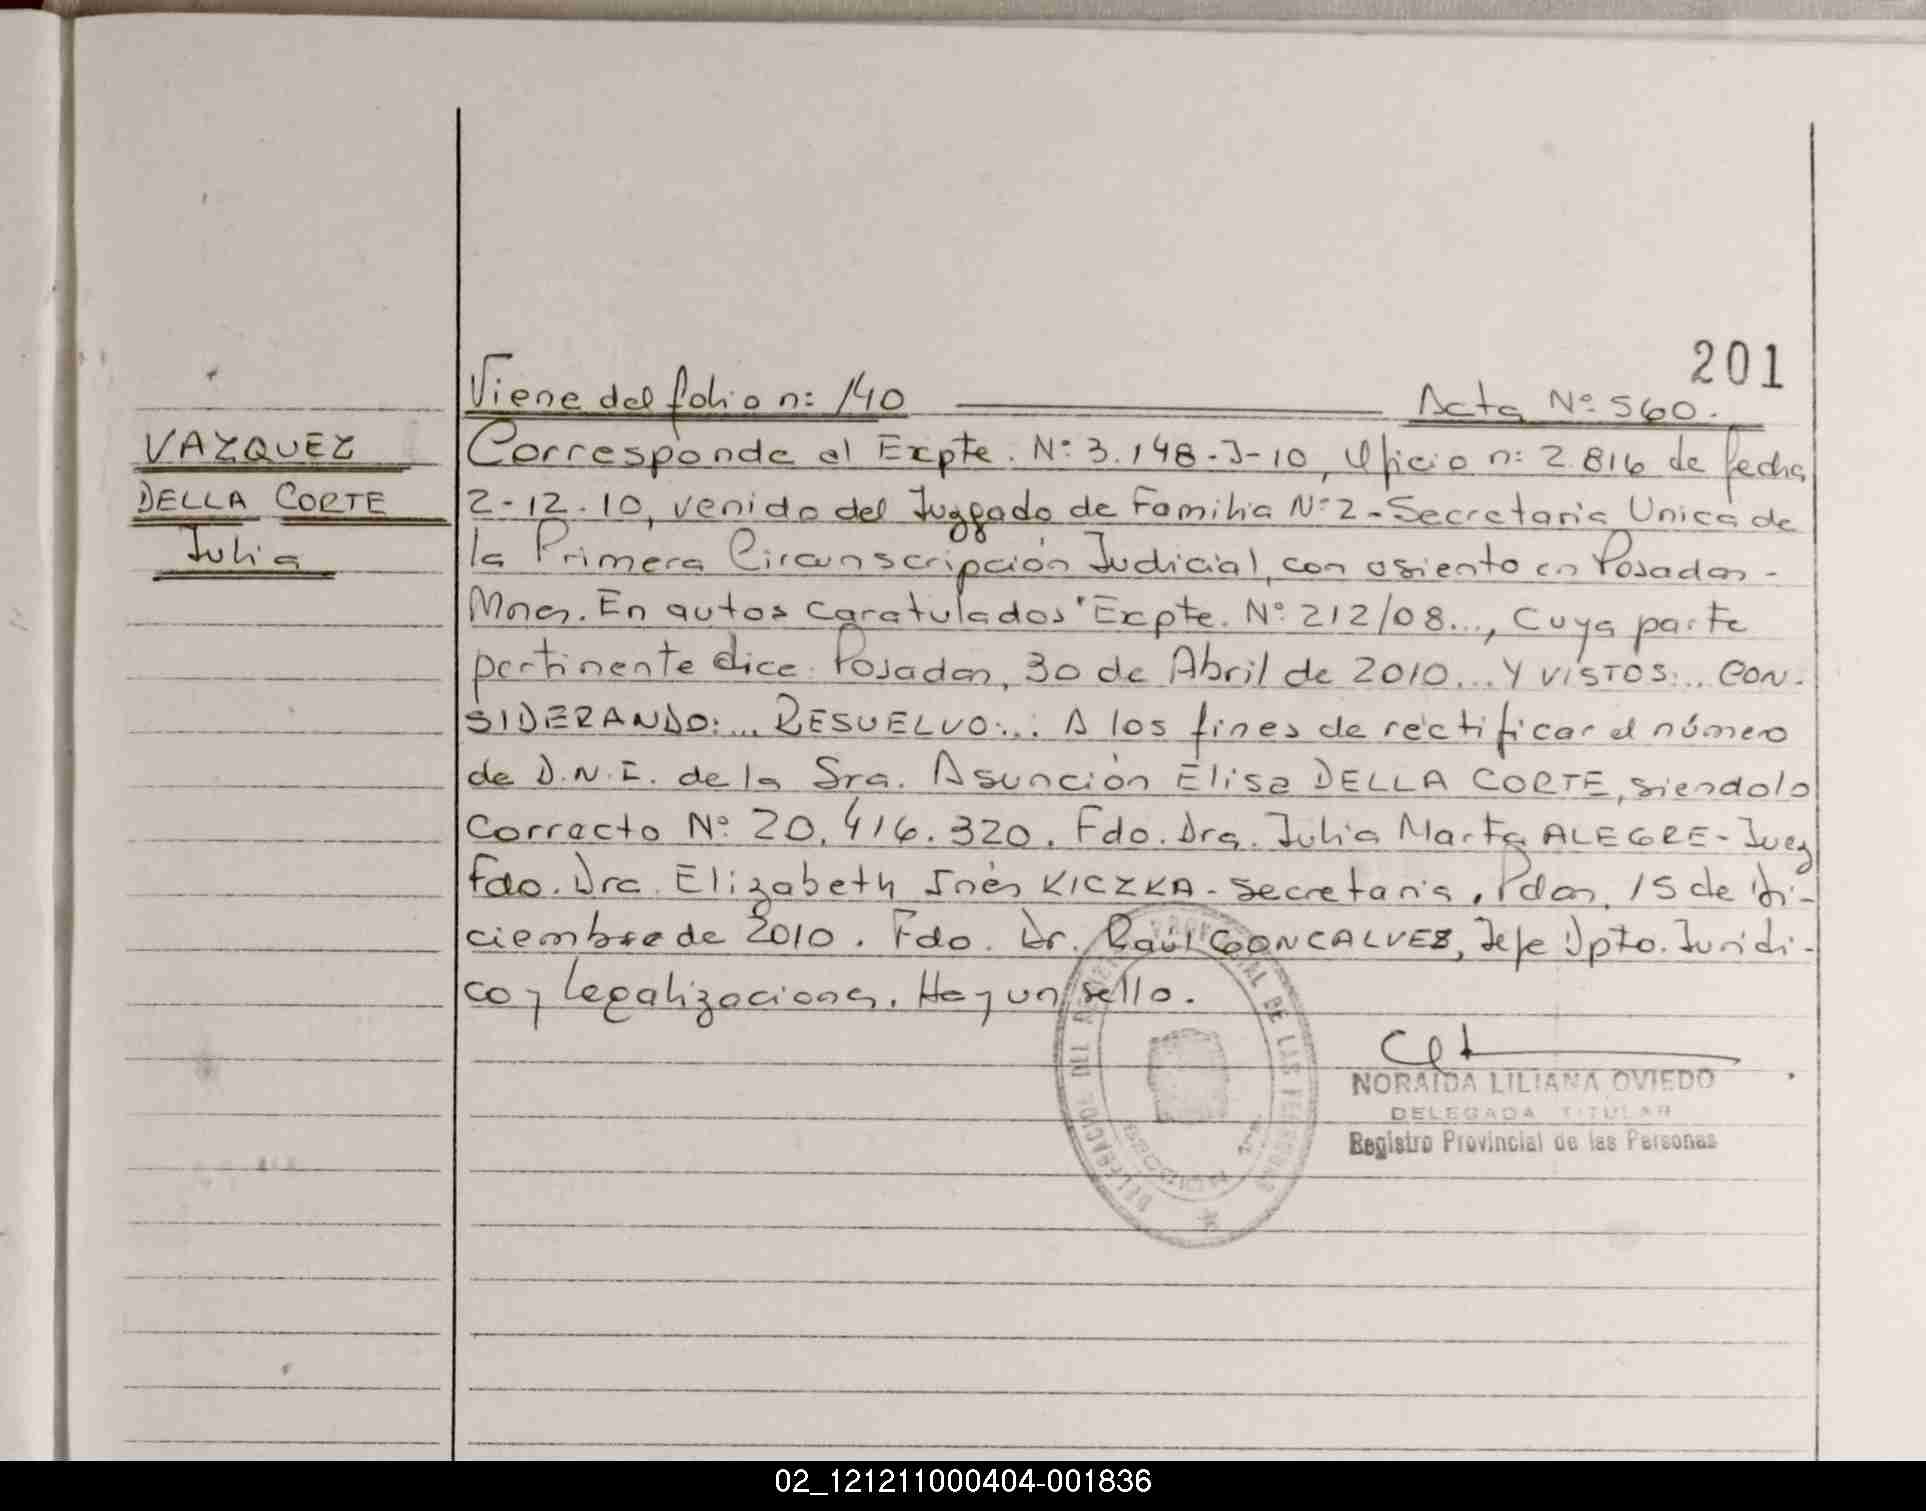 201
Viene del folio n: 140 Acta Nº 560.
VAZQUEZ
DELLA CORTE
Julia
Corresponde al Expte. Nº 3.148-J-10, Oficio n: 2.816 de fecha
2-12-10, venido del Juzgado de Familia Nº 2 - Secretaria Unica de
la Primera Circunscripción Judicial, con asiento en Posadas -
Mnes. En autos caratulados "Expte. Nº 212/08..., Cuya parte
pertinente dice: Posadas, 30 de Abril de 2010... Y VISTOS:... CON-
SIDERANDO:... RESUELVO:... A los fines de rectificar el número
de D.N.I. de la Sra. Asunción Elisa DELLA CORTE, siendolo
Correcto Nº 20.416.320. Fdo. Dra. Julia Marta ALEGRE - Juez
Fdo. Dra. Elizabeth Inés KICZKA - Secretaria. Pdas, 15 de Di-
ciembre de 2010. Fdo. Dr. Raúl GONCALVES, Jefe Dpto. Juridi-
co y Legalizaciones. Hay un sello.
NORAIDA LILIANA OVIEDO
DELEGADA TITULAR
Registro Provincial de las Personas
02_121211000404-001836